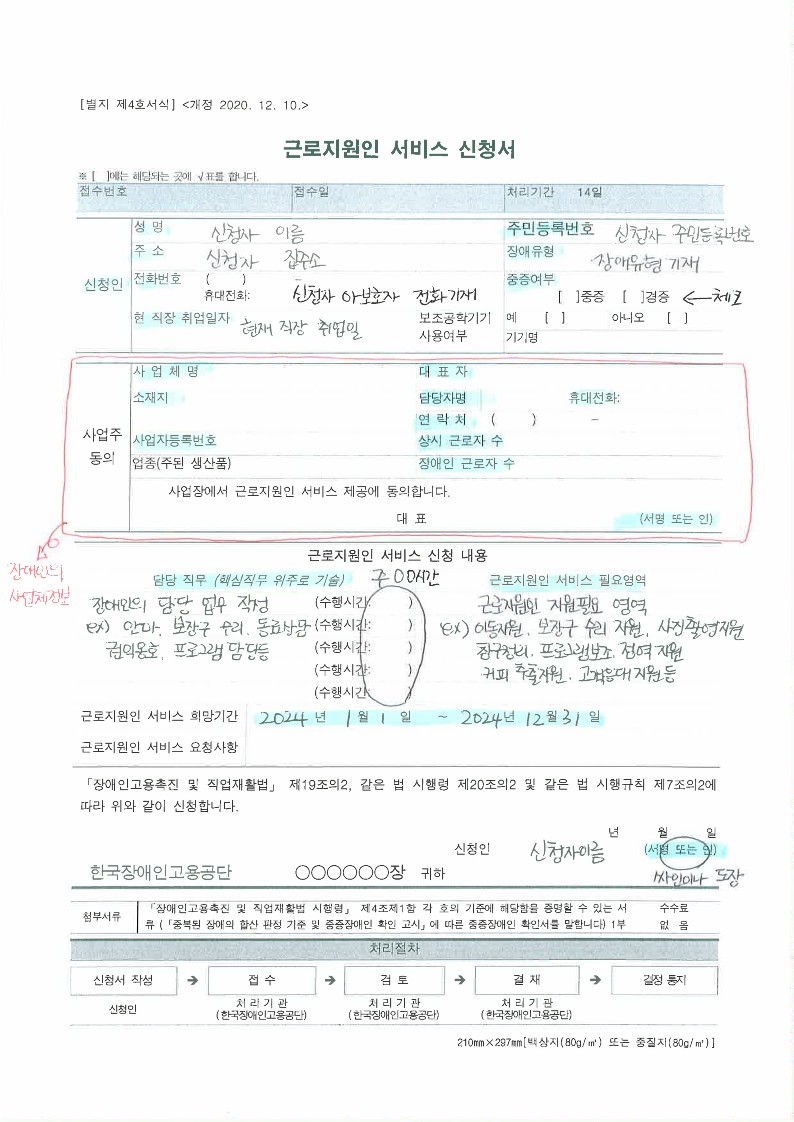 [별지 제4호서식] <개정 2020. 12. 10.>
근로지원인 서비스 신청서
※ [ ]에는 해당되는 곳에 √표를 합니다.
접수번호 접수일 처리기간 14일
신청인
성 명 신청사 이름 주민등록번호 신청사 주민등록번호
주 소 신청사 집주소 장애유형 장애유형 기재
전화번호 ( ) – 중증여부
휴대전화: 신청사 아보호자 전화기재 [ ]중증 [ ]경증 ← 체크
현 직장 취업일자 현재 직장 취업일 보조공학기기 사용여부 예 [ ] 아니오 [ ]
기기명
사업주 동의
사 업 체 명 대 표 자
소재지 담당자명 휴대전화:
연 락 처 ( ) –
사업자등록번호 상시 근로자 수
업종(주된 생산품) 장애인 근로자 수
사업장에서 근로지원인 서비스 제공에 동의합니다.
대 표 (서명 또는 인)
장애인의
사업체정보
근로지원인 서비스 신청 내용
담당 직무 (핵심직무 위주로 기술) 주00시간 근로지원인 서비스 필요영역
장애인의 담당 업무 작성 (수행시간: ) 근로지원인 지원필요 영역
ex) 안마, 보장구 수리, 동료상담 (수행시간: ) ex) 이동지원, 보장구 수리 지원, 사진촬영지원
권익옹호, 프로그램 담당등 (수행시간: ) 창구정리, 프로그램보조, 점역 지원
(수행시간: ) 커피 추출지원, 고객응대지원 등
(수행시간: )
근로지원인 서비스 희망기간 2024 년 1 월 1 일 ~ 2024 년 12 월 31 일
근로지원인 서비스 요청사항
「장애인고용촉진 및 직업재활법」 제19조의2, 같은 법 시행령 제20조의2 및 같은 법 시행규칙 제7조의2에
따라 위와 같이 신청합니다.
년 월 일
신청인 신청자이름 (서명 또는 인)
싸인이나 도장
한국장애인고용공단 ○○○○○○장 귀하
첨부서류
「장애인고용촉진 및 직업재활법 시행령」 제4조제1항 각 호의 기준에 해당함을 증명할 수 있는 서 수수료
류 (「중복된 장애의 합산 판정 기준 및 중증장애인 확인 고시」에 따른 중증장애인 확인서를 말합니다) 1부 없 음
처리절차
신청서 작성 → 접 수 → 검 토 → 결 재 → 결정 통지
신청인 처 리 기 관 처 리 기 관 처 리 기 관
(한국장애인고용공단) (한국장애인고용공단) (한국장애인고용공단)
210㎜×297㎜[백상지(80g/㎡) 또는 중질지(80g/㎡)]